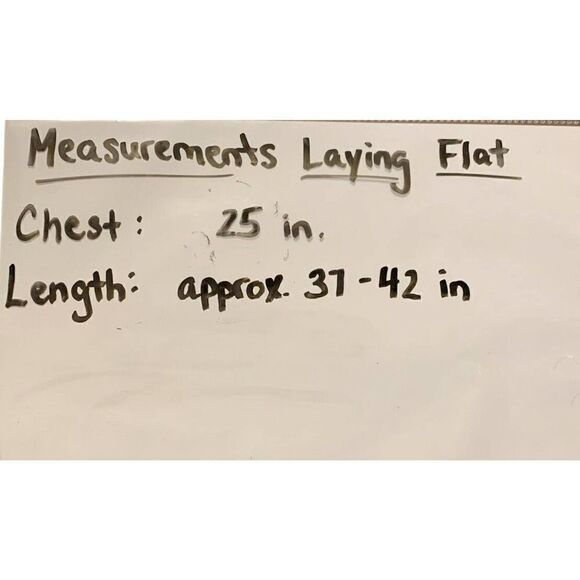 Measurements Laying Flat
Chest: 25 in.
Length: approx. 37-42 in